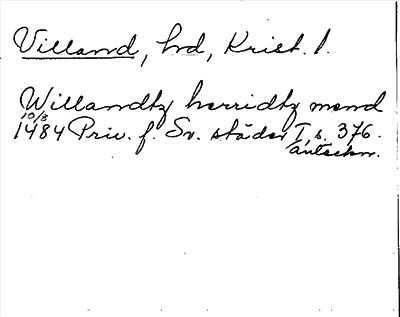 Villand, hd, Krist. l.
Willandtz herridtz mend
10/3
1484 Priv. f. Sv. städer I, s. 376.
avskr.